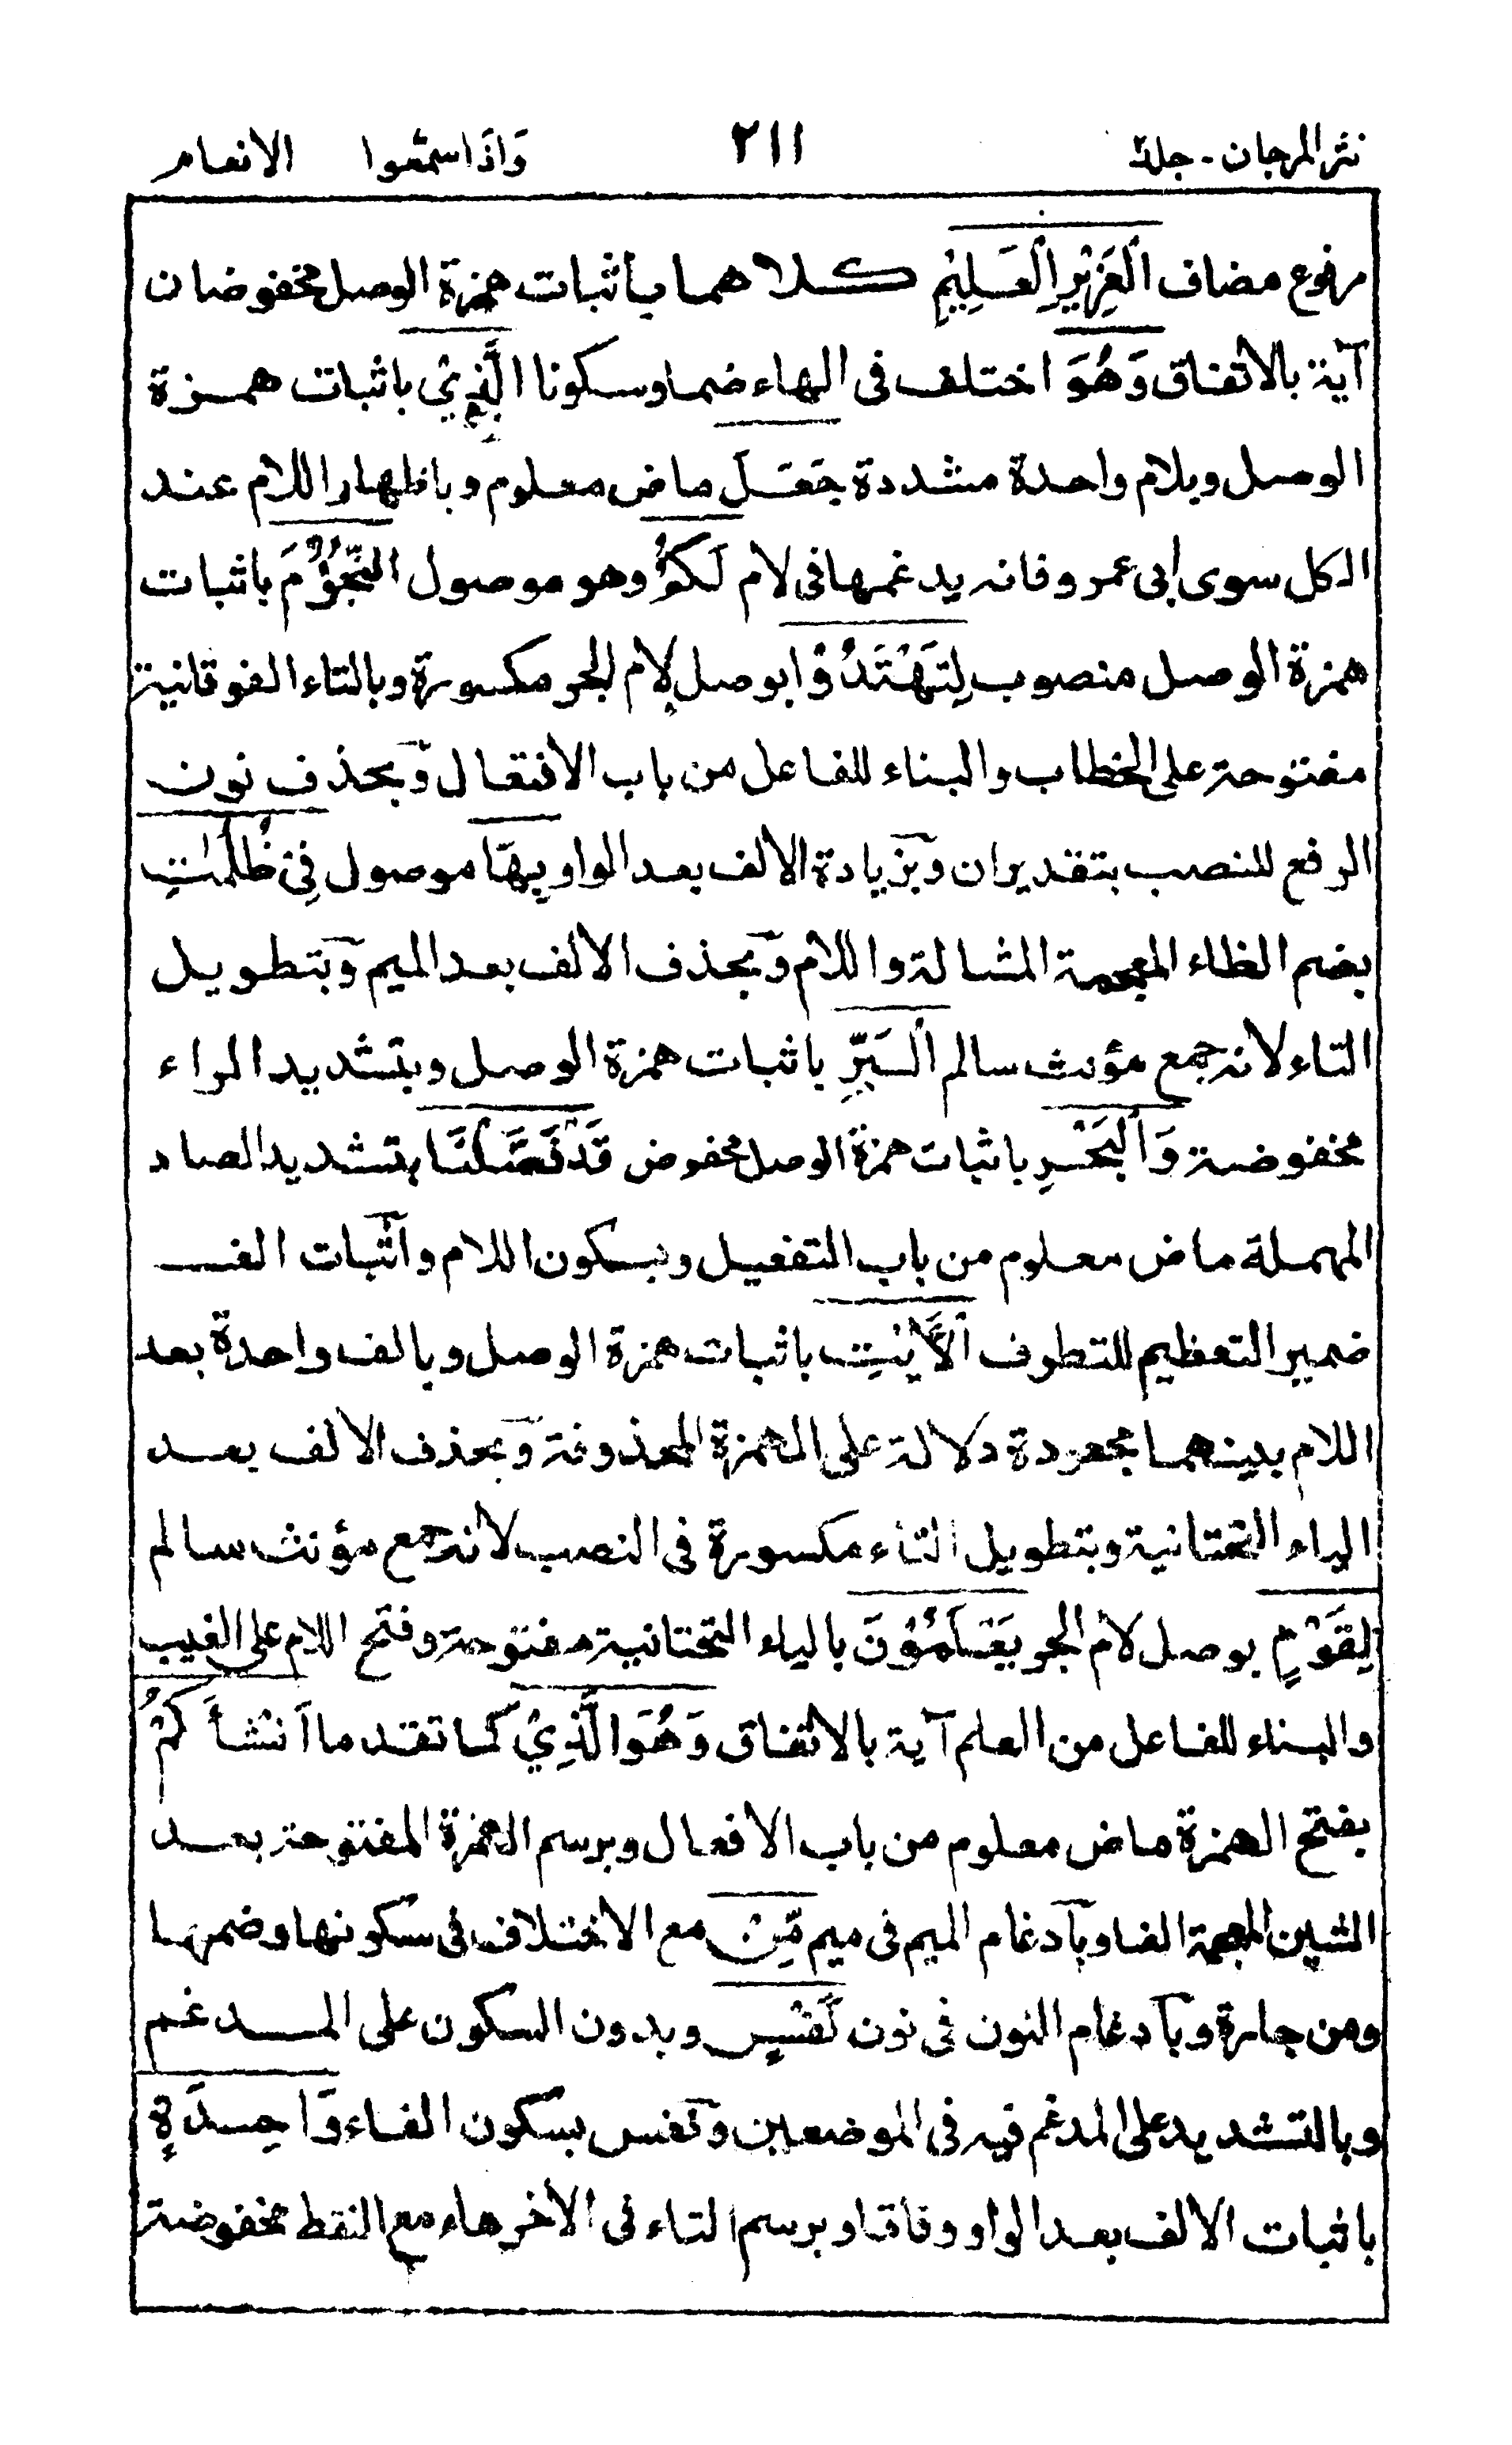 نثر المرجان - جلد ٢١١ وَاذَا سمعوا الانعام
مرفوع مضاف الْعَزِيْزِ الْعَلِيْمِ كلاهما باثبات همزة الوصل مخفوضان
آية بالاتفاق وَهُوَ اختلف فى الهاء ضما وسكونا الَّذِيْ باثبات همزة
الوصل وبلام واحدة مشددة جَعَلَ ماض معلوم وباظهار اللام عند
الكل سوى ابى عمرو فانه يدغمها فى لام لَكُمُ وهو موصول النُّجُوْمَ باثبات
همزة الوصل منصوب لِتَهْتَدُوْا بوصل لام الجر مكسورة وبالتاء الفوقانية
مفتوحة على الخطاب والبناء للفاعل من باب الافتعال وبحذف نون
الرفع للنصب بتقدير ان وبزيادة الالف بعد الواو بِهَا موصول فِيْ ظُلُمٰتِ
بضم الظاء المعجمة المشالة واللام وبحذف الالف بعد الميم وبتطويل
التاء لانه جمع مؤنث سالم الْبَرِّ باثبات همزة الوصل وبتشديد الراء
مخفوضة وَالْبَحْرِ باثبات همزة الوصل مخفوض قَدْ فَصَّلْنَا بتشديد الصاد
المهملة ماض معلوم من باب التفعيل وبسكون اللام واثبات الف
ضمير التعظيم للتطرف الْاٰيٰتِ باثبات همزة الوصل وبالف واحدة بعد
اللام بينهما مجعودة دلالة على الهمزة المحذوفة وبحذف الالف بعد
الياء التحتانية وبتطويل التاء مكسورة فى النصب لانه جمع مؤنث سالم
لِقَوْمٍ بوصل لام الجر يَعْلَمُوْنَ بالياء التحتانية مفتوحة وفتح اللام على الغيب
والبناء للفاعل من العلم آية بالاتفاق وَهُوَ الَّذِيْ كما تقدم اَنْشَأَكُمْ
بفتح الهمزة ماض معلوم من باب الافعال وبرسم الهمزة المفتوحة بعد
الشين المعجمة الفا وبادغام الميم فى ميم مِّنْ مع الاختلاف فى سكونها وضمها
ومن جارة وبادغام النون فى نون نَّفْسٍ وبدون السكون على المدغم
وبالتشديد على المدغم فيه فى الموضعين ونفس بسكون الفاء وَاحِدَةٍ
باثبات الالف بعد الواو وفاقا وبرسم التاء فى الاخر هاء مع النقط مخفوضة